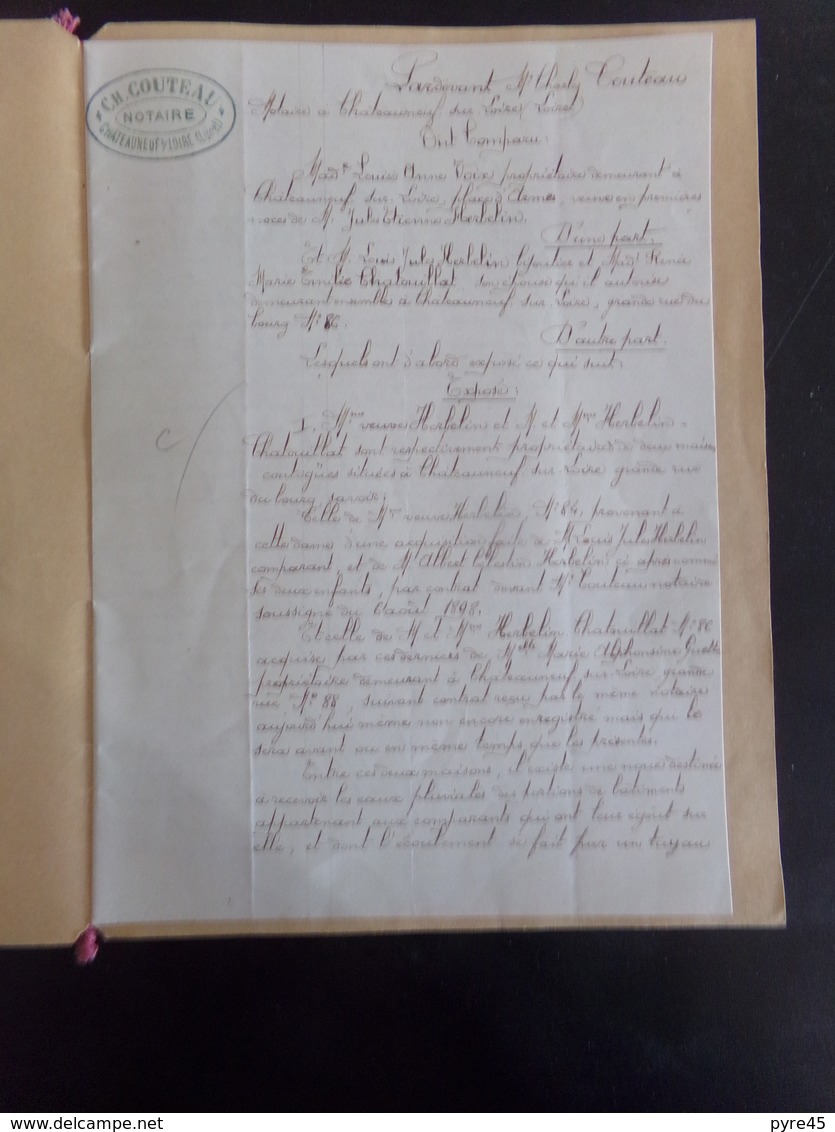 CH. COUTEAU
NOTAIRE
CHATEAUNEUF S/ LOIRE (Loiret)
Pardevant Me Charly Couteau
Notaire à Chateauneuf sur Loire (Loiret)
Ont Comparu:
Made Louise Anne Voix propriétaire demeurant à
Chateauneuf sur Loire, place d'Armes, veuve en premières
noces de M. Jules Etienne Herbelin.
D'une part.
Et M. Louis Jules Herbelin bijoutier et Made Renée
Marie Emilie Chatouillat son épouse qu'il autorise
demeurant ensemble à Chateauneuf sur Loire, grande rue du
bourg No 86.
D'autre part.
Lesquels ont d'abord exposé ce qui suit:
Exposé:
I. Mme veuve Herbelin et M et Mme Herbelin-
Chatouillat sont respectivement propriétaires de deux maisons
contigües situées à Chateauneuf sur Loire grande rue
du bourg savoir;
Celle de Mme veuve Herbelin, No 84, provenant à
cette dame d'une acquisition faite de M Louis Jules Herbelin
comparant, et de M. Albert Célestin Herbelin ci après nommé
ses deux enfants, par contrat devant Me Couteau notaire
soussigné du 6 août 1898.
Et celle de M et Mme Herbelin Chatouillat No 86
acquise par ces derniers de Melle Marie Alphonsine
propriétaire demeurant à Chateauneuf sur Loire grande
rue No 88, suivant contrat reçu par le même notaire
aujourd'hui même non encore enregistré mais qui le
sera avant ou en même temps que les présentes.
Entre ces deux maisons, il existe une noue destinée
à recevoir les eaux pluviales des portions de bâtiments
appartenant aux comparants qui ont leur égout sur
elle, et dont l'écoulement se fait par un tuyau
pyre45